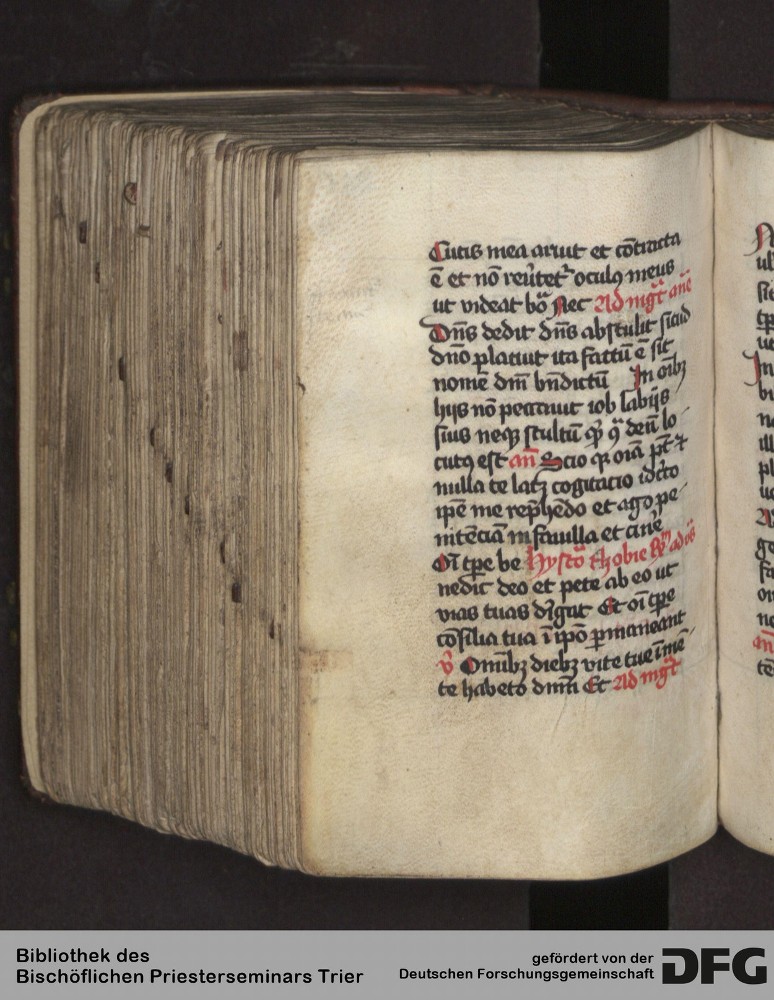 Cutis mea aruit et cōtracta
ē et nō reūtet᷑ oculꝯ meus
ut videat bōa Nec Ad mgt̄ ane
Dn̄s dedit dn̄s abstulit sicud
dn̄o placuit ita factū ē sit
nomē dn̄i bn̄dictū In oīb
hijs nō peccauit iob labijs
suis neqꝫ stultū deū lo
cutꝯ est an̄ Scio qꝛ oīa
nulla te latꝫ cogitacio idcīrco
ipē me rep̄hēdo et ago pe
nitēciam in fauilla et cinē
Oī tp̄e be Hysto thobie
nedic deo et pete ab eo ut
vias tuas dīgat Et oī tp̄e
cōsilia tua ī ip̄o pmaneant
Omībꝫ diebꝫ vite tue ī mē
te habeto dn̄m Et Ad mgt̄
Bibliothek des
Bischöflichen Priesterseminars Trier
gefördert von der
Deutschen Forschungsgemeinschaft
DFG